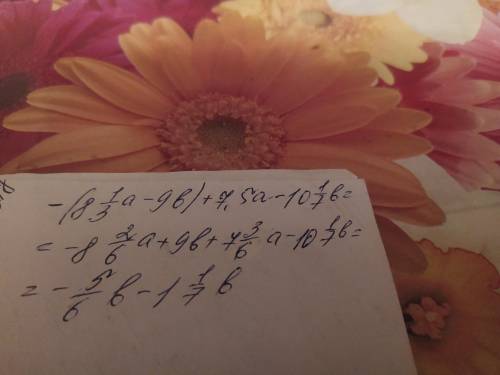 -(8 1/3 a - 9b) + 7,5a - 10 1/7 b =
= -8 2/6 a + 9b + 7 3/6 a - 10 1/7 b =
= - 5/6 b - 1 1/7 b